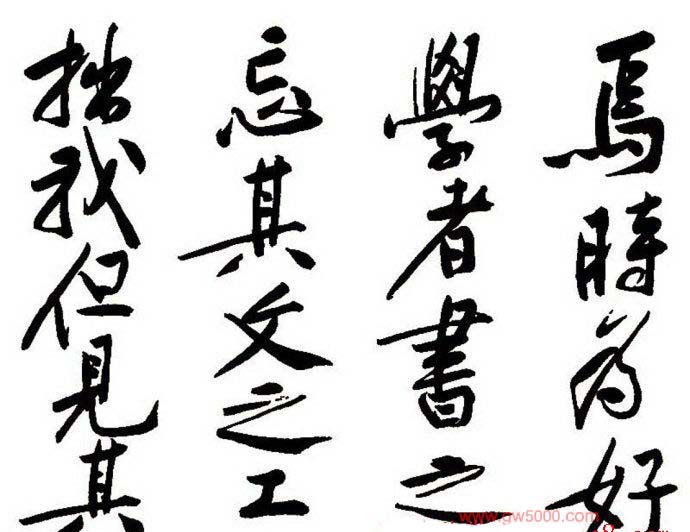 焉時為好
學者書之
忘其文之工
拙我但見其
www.gw5000.com